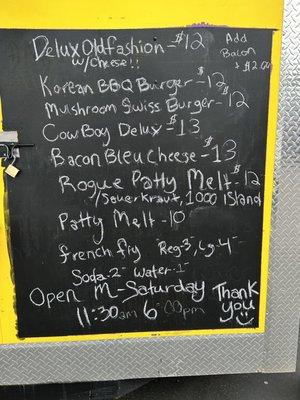 Delux Old Fashion - $12
w/ cheese!!
Add
Bacon
+ $2.00
Korean BBQ Burger - $12
Mushroom Swiss Burger - $12
CowBoy Delux - $13
Bacon Bleu Cheese - $13
Rogue Patty Melt - $12
w/ Sauerkraut, 1000 Island
Patty Melt - 10
french fry Reg-3-, Lg-4-
Soda-2- Water-1-
Open M-Saturday
11:30am 6:00pm
Thank
you